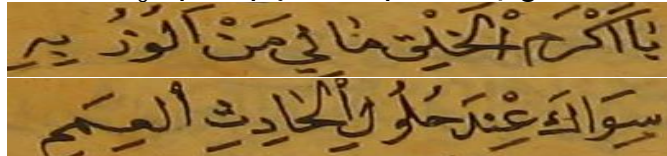 يَا اَكْرَمَ الْخَلْقِ مَا لِي مَنْ اَلُوذُ بِهِ
سِوَاكَ عِنْدَ حُلُولِ الْحَادِثِ الْعِمَمِ